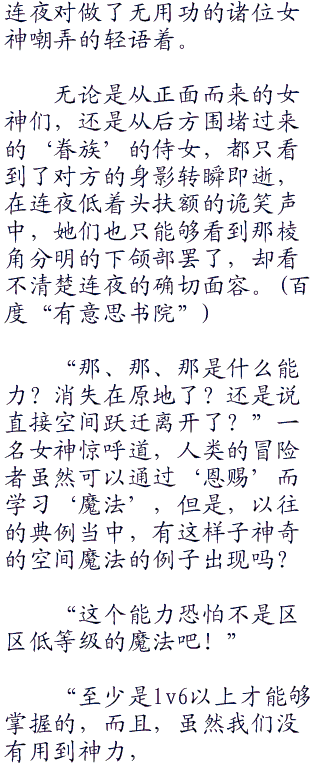 连夜对做了无用功的诸位女
神嘲弄的轻语着。
无论是从正面而来的女
神们，还是从后方围堵过来
的‘眷族’的侍女，都只看
到了对方的身影转瞬即逝，
在连夜低着头扶额的诡笑声
中，她们也只能够看到那棱
角分明的下颌部罢了，却看
不清楚连夜的确切面容。(百
度“有意思书院”)
“那、那、那是什么能
力？消失在原地了？还是说
直接空间跃迁离开了？”一
名女神惊呼道，人类的冒险
者虽然可以通过‘恩赐’而
学习‘魔法’，但是，以往
的典例当中，有这样子神奇
的空间魔法的例子出现吗？
“这个能力恐怕不是区
区低等级的魔法吧！”
“至少是1v6以上才能够
掌握的，而且，虽然我们没
有用到神力，